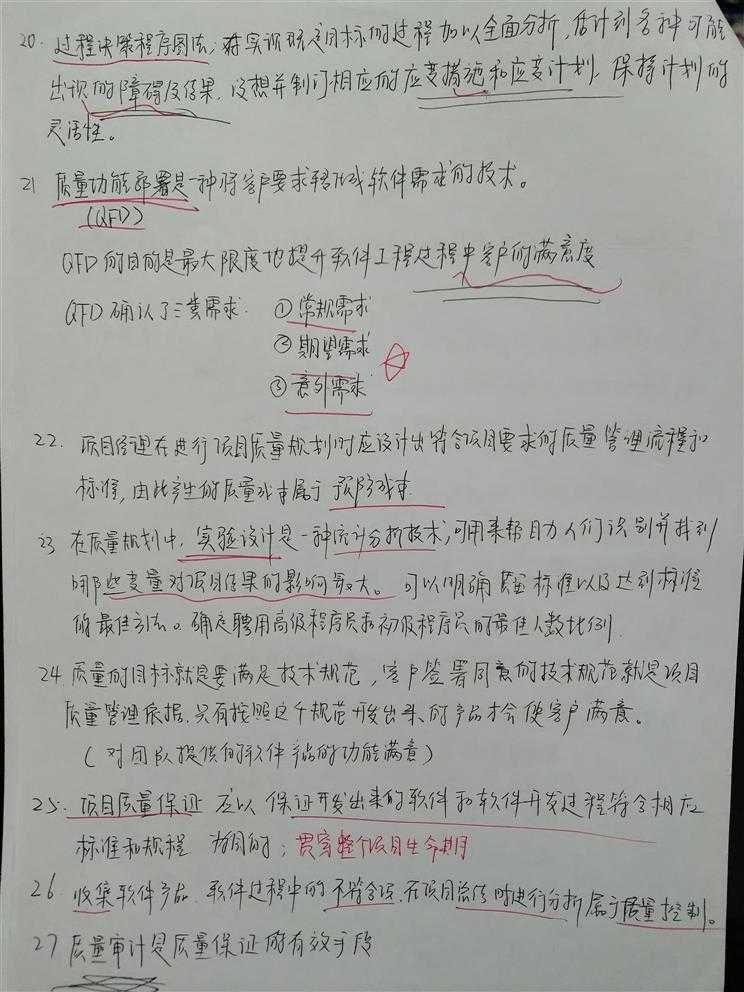 20. 过程决策程序图法, 对实现既定目标的过程加以全面分析, 估计到各种可能
出现的障碍及结果. 设想并制订相应的应变措施和应变计划. 保持计划的
灵活性。
21 质量功能部署是一种将客户要求转化成软件需求的技术。
(QFD)
QFD的目的是最大限度地提升软件工程过程中客户的满意度
QFD确认了三类需求. ①常规需求
②期望需求
③意外需求
22. 项目经理在进行项目质量规划时应设计出符合项目要求的质量管理流程和
标准, 由此产生的质量成本属于 预防成本
23 在质量规划中, 实验设计是一种统计分析技术, 可用来帮助人们识别并找到
哪些变量对项目结果的影响最大。可以明确 标准以及达到标准
的最佳方法。确定聘用高级程序员和初级程序员的最佳人数比例.
24 质量的目标就是要满足技术规范, 客户签署同意的技术规范就是项目
质量管理依据. 只有按照这个规范开发出来的产品才会使客户满意。
(对团队提供的软件产品的功能满意)
25. 项目质量保证 应以 保证开发出来的软件和软件开发过程符合相应
标准和规程 为目的; 贯穿整个项目生命期
26. 收集软件产品. 软件过程中的不符合项. 在项目总结时进行分析属于质量控制。
27 质量审计是质量保证的有效手段